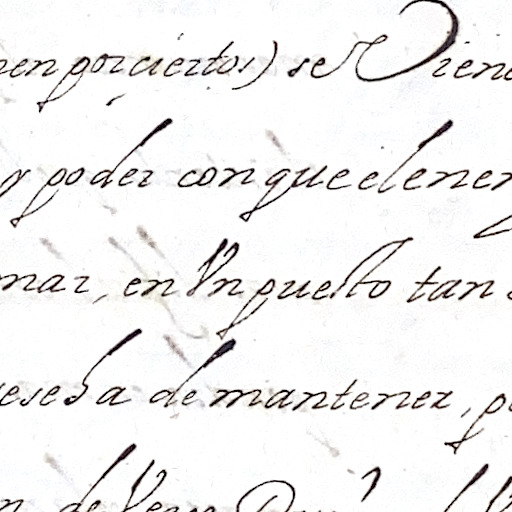 nen por ciertos) se Viene
y poder con que el enen
mar, en Vn puesto tan
se se ha de mantener, p
de